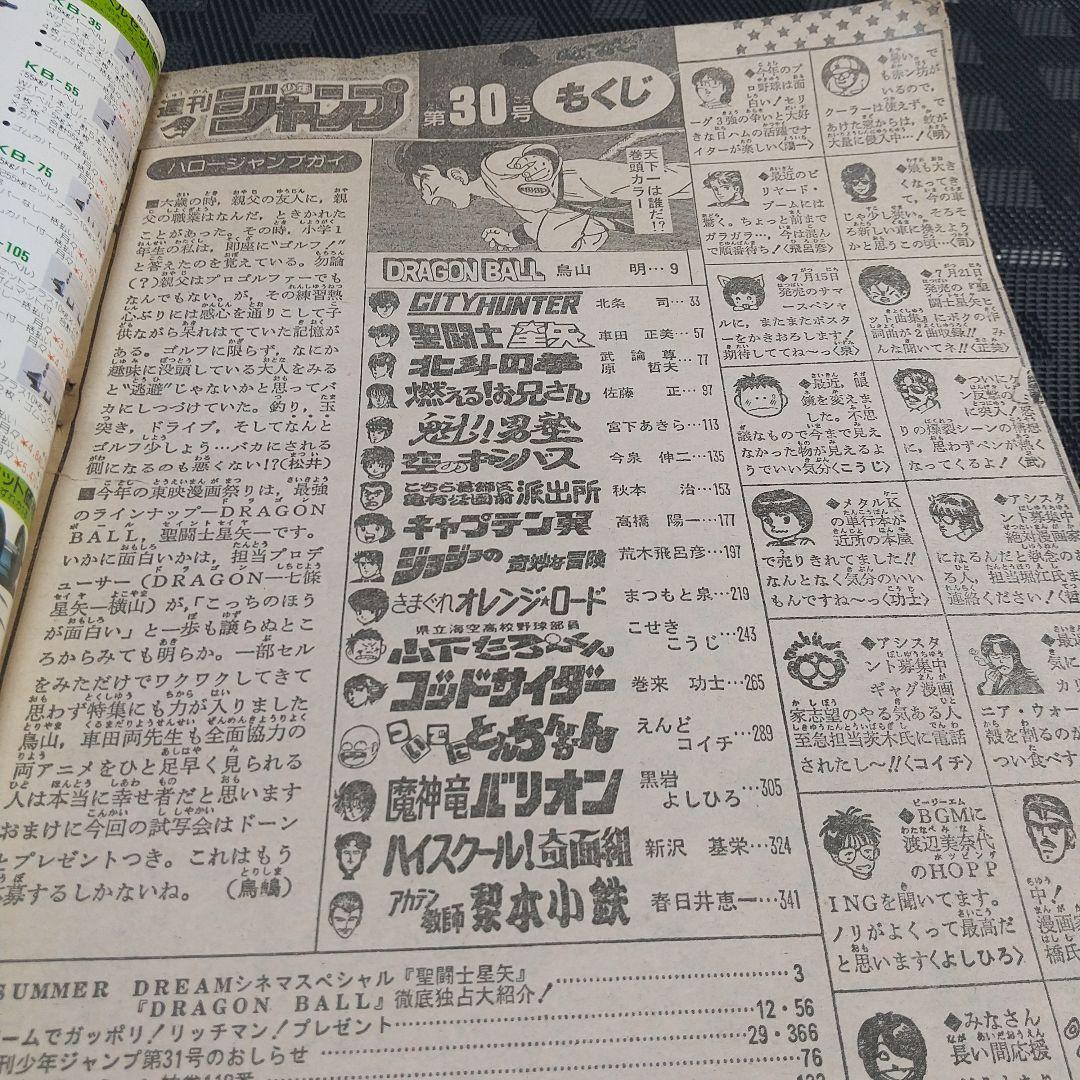 KB-35
KB-55
KB-75
-105
週刊少年ジャンプ
第30号
もくじ
ハロージャンプガイ
■六歳の時，親父の友人に，親
父の職業はなんだ，ときかれた
ことがあった。その時，小学1
年生の私は，即座に“ゴルフ！”
と答えたのを覚えている。勿論
(？)親父はプロゴルファーでも
なんでもない。が，その練習熱
心ぶりには感心を通りこして子
供ながら呆れはてていた記憶が
ある。ゴルフに限らず，なにか
趣味に没頭している大人をみる
と“逃避”じゃないかと思ってバ
カにしつづけていた。釣り，玉
突き，ドライブ，そしてなんと
ゴルフ少しょう…バカにされる
側になるのも悪くない!?(松井)
■今年の東映漫画祭りは，最強
のラインナップーDRAGON
BALL，聖闘士星矢―です。
いかに面白いかは，担当プロデ
ューサー(DRAGON―七條
星矢―横山)が，「こっちのほう
が面白い」と一歩も譲らぬとこ
ろからみても明らか。一部セル
をみただけでワクワクしてきて
思わず特集にも力が入りました
鳥山，車田両先生も全面協力の
両アニメをひと足早く見られる
人は本当に幸せ者だと思います
おまけに今回の試写会はドーン
とプレゼントつき。これはもう
応募するしかないね。（鳥嶋）
天下一は誰だ!?
巻頭カラー
DRAGON BALL 鳥山 明…9
CITY HUNTER 北条 司…33
聖闘士星矢 車田 正美…57
北斗の拳 武論尊 原哲夫…77
燃える！お兄さん 佐藤 正…97
魁!!男塾 宮下あきら…113
空のキャンバス 今泉 伸二…135
こちら葛飾区亀有公園前派出所 秋本 治…153
キャプテン翼 高橋 陽一…177
ジョジョの奇妙な冒険 荒木飛呂彦…197
きまぐれオレンジ★ロード まつもと泉…219
県立海空高校野球部員
山下たろーくん こせきこうじ…243
ゴッドサイダー 巻来 功士…265
ついでにとんちんかん えんどコイチ…289
魔神竜バリオン 黒岩よしひろ…305
ハイスクール！奇面組 新沢 基栄…324
アカテン教師梨本小鉄 春日井恵一…341
SUMMER DREAMシネマスペシャル『聖闘士星矢』
『DRAGON BALL』徹底独占大紹介！…3
ームでガッポリ！リッチマン！プレゼント…12・56
刊少年ジャンプ第31号のおしらせ…29・366
76
◆今年のプ
ロ野球は面
白い！セリ
ーグ3強の争いと大好
きな日ハムの活躍でナ
イターが楽しい〈陽一〉
◆最近のビ
リヤード・
ブームには
驚く。ちょっと前まで
ガラガラ…，今は混ん
で順番待ち！〈飛呂彦〉
◆7月15日
発売のサマ
ースペシャ
ルに，またまたポスタ
ーをかきおろします！
期待しててね〜っ〈泉〉
◆最近，眼
鏡を変えま
した。不思
議なもので今まで見え
なかった物が見えるよ
うでいい気分〈こうじ〉
◆メタルK
の単行本が
近所の本屋
で売りきれてました!!
なんとなく気分のいい
もんですね〜っ〈功士〉
◆アシスタ
ント募集中
ギャグ漫画
家志望のやる気ある人
至急担当茨木氏に電話
されたし〜!!〈コイチ〉
◆BGMに
渡辺美奈代
のHOPP
INGを聞いてます。
ノリがよくって最高だ
と思います〈よしひろ〉
◆みなさん
長い間応援
◆暑い。で
も赤ン坊が
いるので，
クーラーは使えず。で
あけた窓からは，蚊が
大量に侵入中…！〈明〉
◆娘も大き
くなってき
て，今の車
じゃ少し狭い。そろそ
ろ新しい車に換えよう
かと思うこの頃…〈司〉
◆7月21日
発売の『聖
闘士星矢ヒ
ット曲集』にボクの作
詞曲が2曲収録!! み
んな聞いてネ!!〈正美〉
◆ついにケ
ン反撃の
に突入！
りの爆裂シーンの構想
に，思わずペンが熱く
なってくるよ！〈武〉
◆アシスタ
ント募集中
絶対漫画家
になるんだと執念のあ
る人，担当堀江氏ま
連絡ください！〈哲
◆最近
気に
カリ
ニア・ウォー
殻を割るのが
つい食べす
中！
漫画家
橋氏